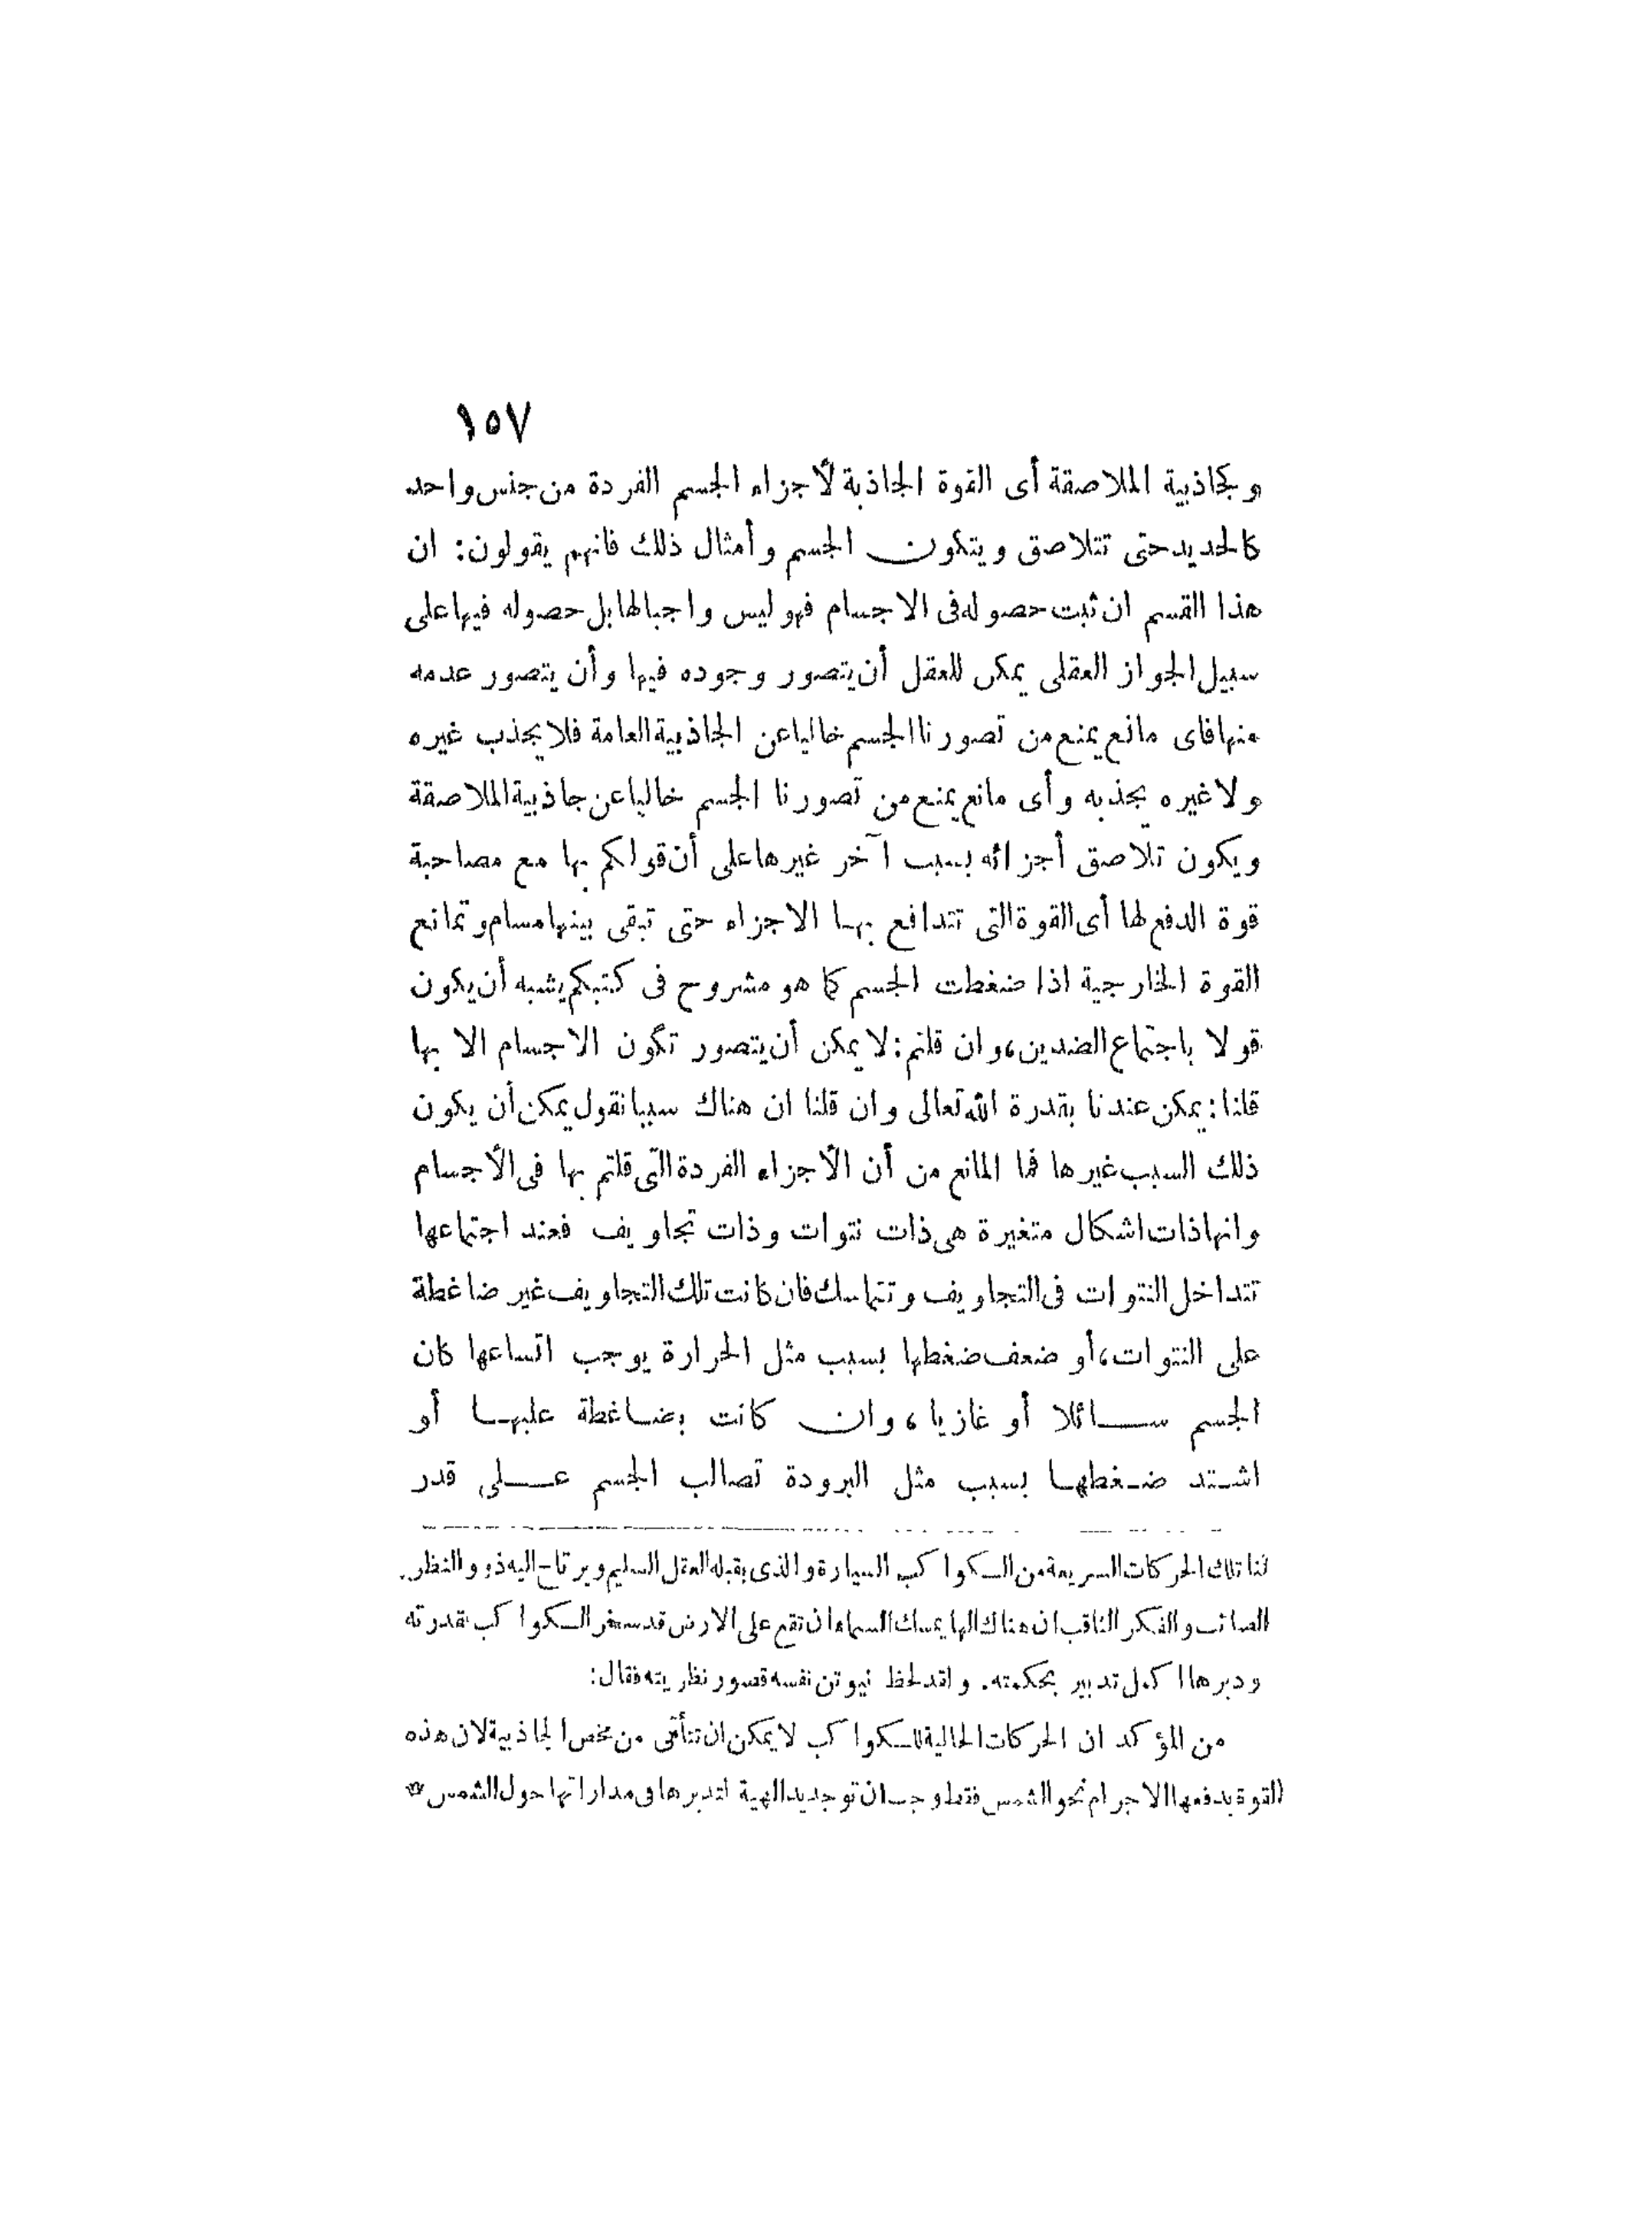 ١٥٧
وكجاذبية الملاصقة أى القوة الجاذبة لأجزاء الجسم الفردة من جنس واحد
كالحديد حتى تتلاصق ويتكون الجسم وأمثال ذلك فانهم يقولون: ان
هذا القسم ان ثبت حصوله فى الاجسام فهو ليس واجبا لها بل حصوله فيها على
سبيل الجواز العقلى يمكن للعقل أن يتصور وجوده فيها وأن يتصور عدمه
منها فاى مانع يمنع من تصورنا الجسم خاليا عن الجاذبية العامة فلا يجذب غيره
ولا غيره يجذبه وأى مانع يمنع من تصورنا الجسم خاليا عن جاذبية الملاصقة
ويكون تلاصق أجزائه بسبب آخر غيرها على أن قولكم بها مع مصاحبة
قوة الدفع لها أى القوة التى تتدافع بها الاجزاء حتى تبقى بينها مسام وتمانع
القوة الخارجية اذا ضغطت الجسم كما هو مشروح فى كتبكم يشبه أن يكون
قولا باجتماع الضدين، وان قلتم: لا يمكن أن يتصور تكون الاجسام الا بها
قلنا: يمكن عندنا بقدرة الله تعالى وان قلنا ان هناك سببا نقول يمكن أن يكون
ذلك السبب غيرها فما المانع من أن الأجزاء الفردة التى قلتم بها فى الأجسام
وانها ذات اشكال متغيرة هى ذات نتوات وذات تجاويف فعند اجتماعها
تتداخل النتوات فى التجاويف وتتماسك فان كانت تلك التجاويف غير ضاغطة
على النتوات، أو ضعف ضغطها بسبب مثل الحرارة يوجب اتساعها كان
الجسم سائلا أو غازيا، وان كانت بضاغطة عليها أو
اشتد ضغطها بسبب مثل البرودة تصالب الجسم على قدر
لنا تلك الحركات السريعة من الكواكب السيارة والذى يقبله العقل السليم ويرتاح اليه ذوو النظر
الصائب والفكر الثاقب ان هناك الها يمسك السماء ان تقع على الارض قد سخر الكواكب بقدرته
ودبرها اكمل تدبير بحكمته. ولقد لحظ نيوتن نفسه قصور نظريته فقال:
من المؤكد ان الحركات الحالية للكواكب لا يمكن ان تتأتى من محض الجاذبية لان هذه
القوة يدفعها الاجرام نحو الشمس فقط وجب ان توجد يد الهية لتدبرها فى مداراتها حول الشمس